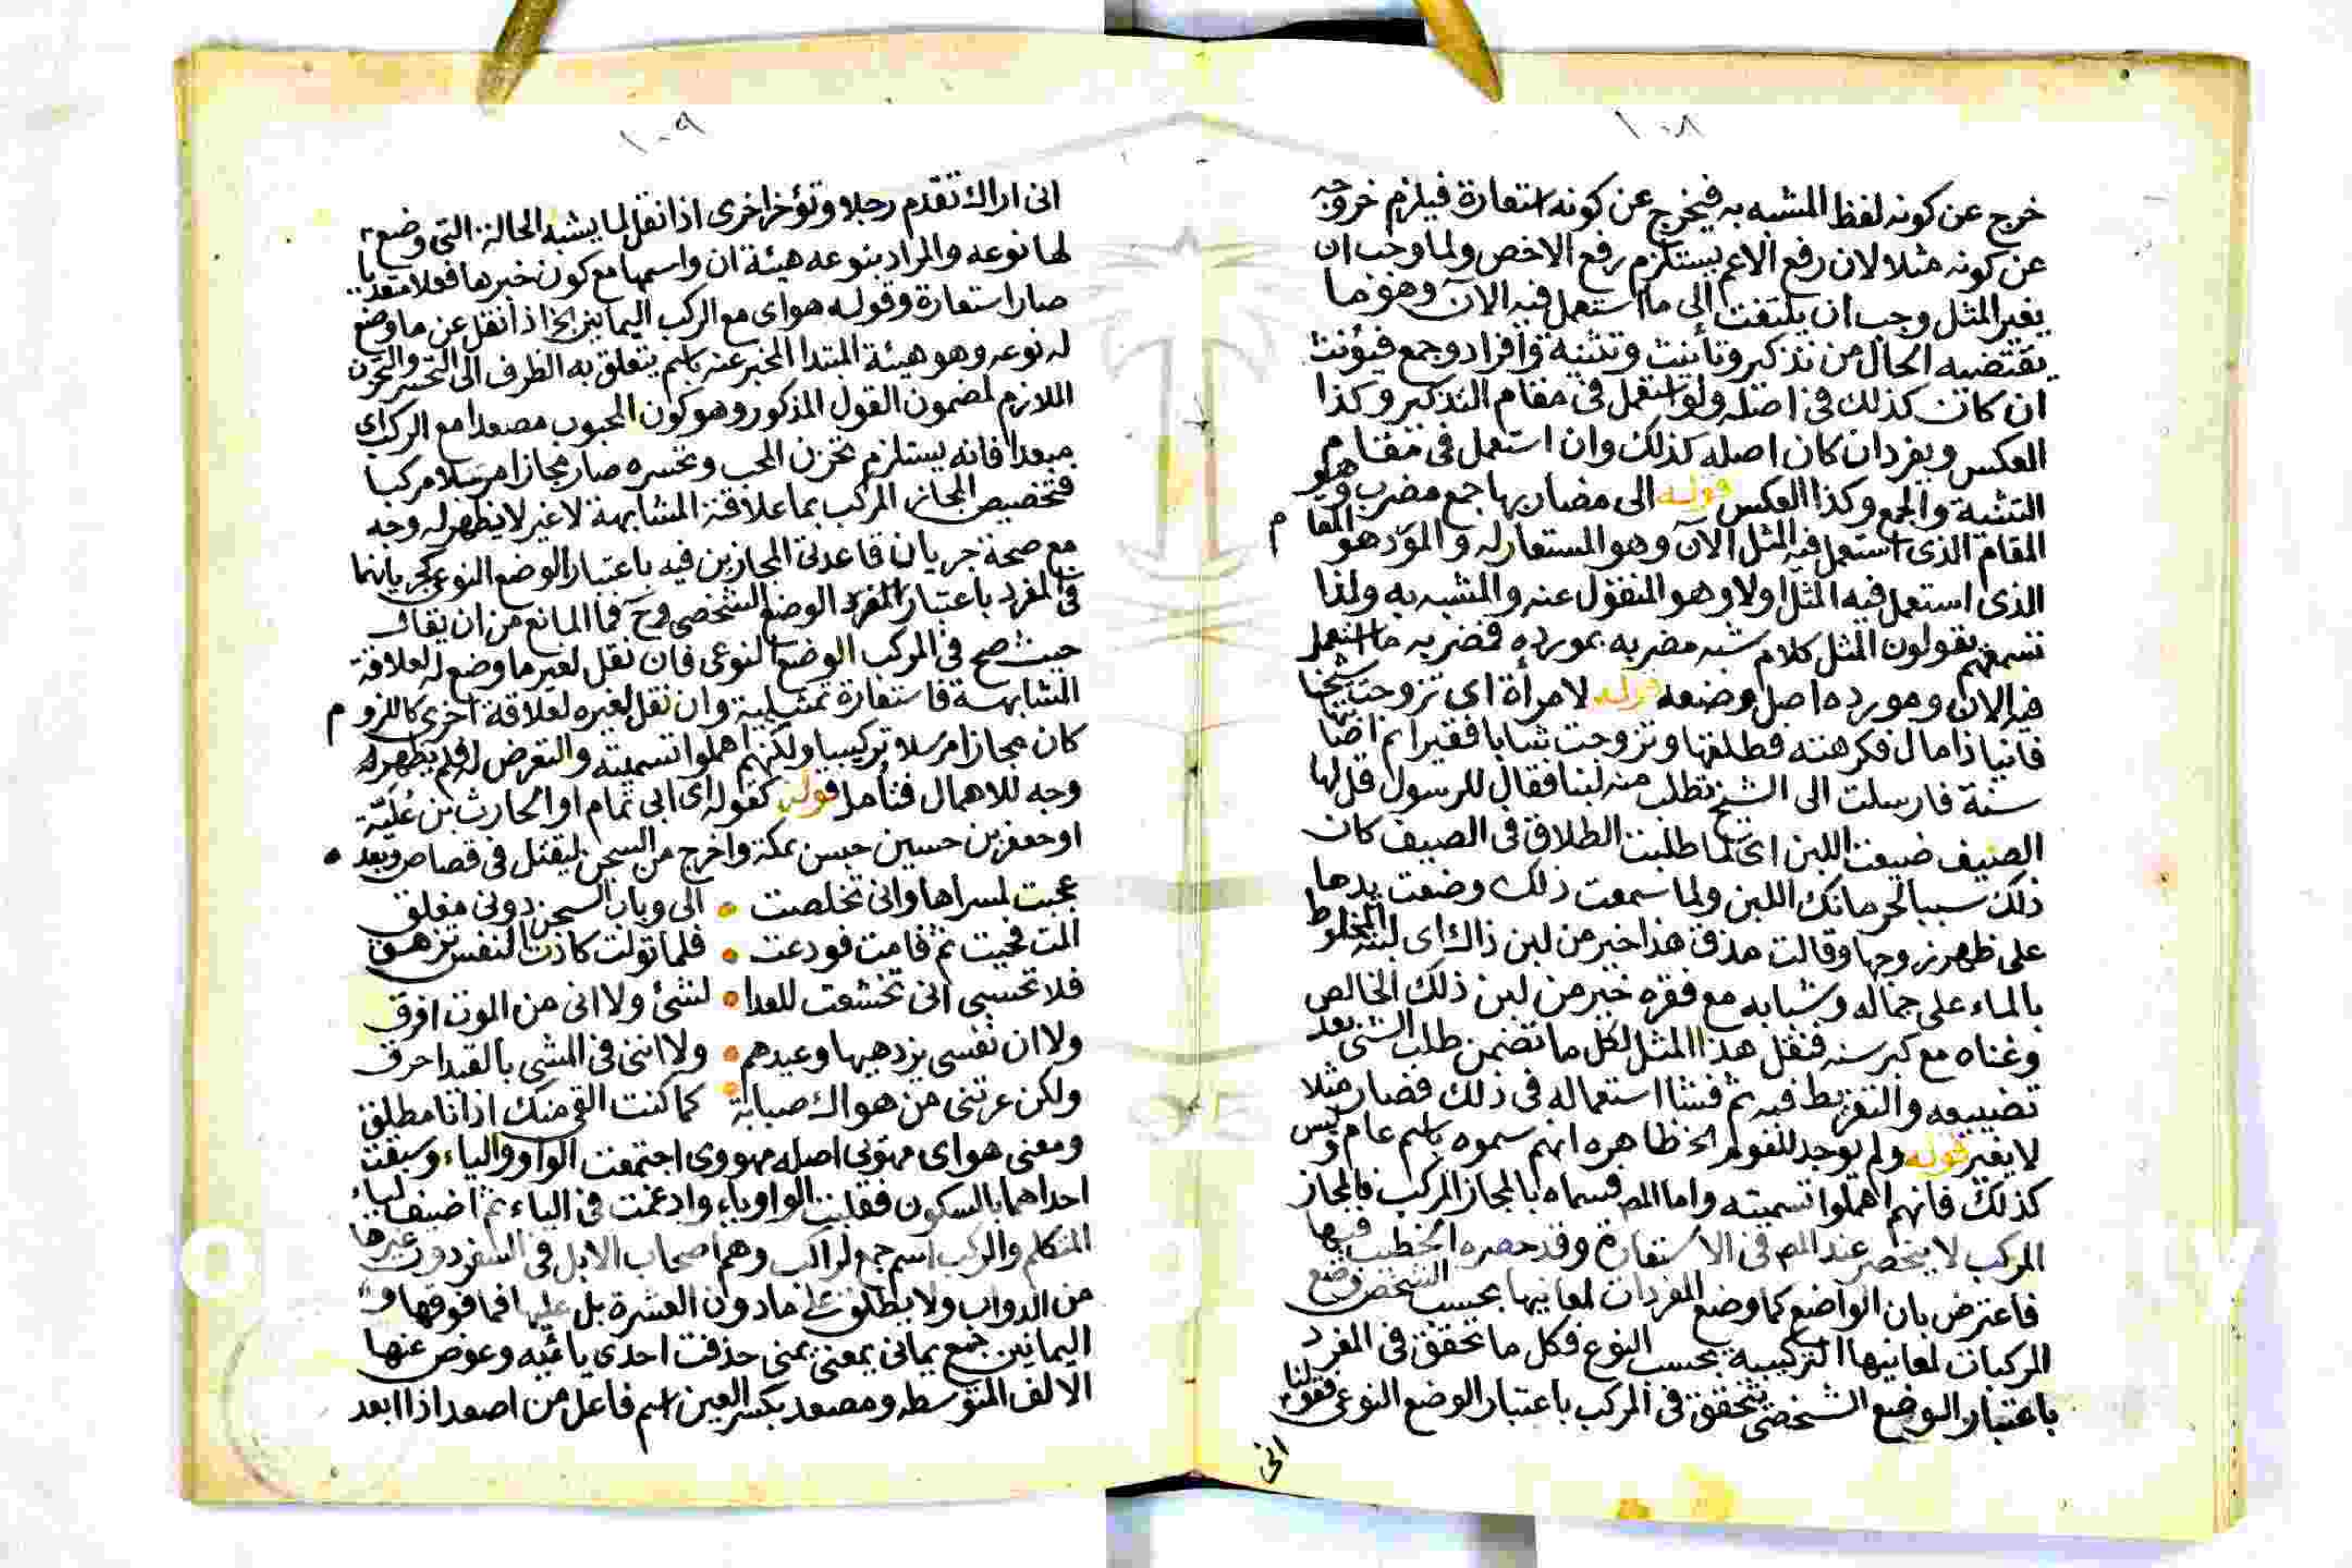 ١٠٨
خرج عن كونه لفظ المشبه به فيخرج عن كونه استعارة فيلزم خروجه
عن كونه مثلا لان رفع الاعم يستلزم رفع الاخص ولما وجب ان
يغير المثل وجب ان يلتفت الى ما استعمل فيه الآن وهو ما
يقتضيه الحال من تذكير وتأنيث وتثنية وافراد وجمع فيؤنث
ان كانت كذلك في اصله ولو استعمل في مقام التذكير وكذا
العكس ويفرد ان كان اصله كذلك وان استعمل في مقام
التثنية والجمع وكذا العكس قوله الى مضاربها جمع مضرب وهو
المقام الذى استعمل فيه المثل الآن وهو المستعار له والمورد هو المقام
الذى استعمل فيه المثل اولا وهو المنقول عنه والمشبه به ولذا
تسمعهم يقولون المثل كلام شبه مضربه بمورده فمضربه ما استعمل
فيه الان ومورده اصل وضعه قوله لامرأة اى تزوجت شيخا
فانيا ذا مال فكرهته فطلقها وتزوجت شابا فقيرا ثم اصابتها
سنة فارسلت الى الشيخ تطلب منه لبنا فقال للرسول قل لها
الصيف ضيعت اللبن اى لما طلبت الطلاق في الصيف كان
ذلك سببا لحرمانك اللبن ولما سمعت ذلك وضعت يدها
على ظهر زوجها وقالت مذق هذا خير من لبن ذاك اى لبنه المخلوط
بالماء على جماله وشبابه مع فقره خير من لبن ذلك الخالص
وغناه مع كبر سنه فنقل هذا المثل لكل ما تضمن طلب الشئ بعد
تضييعه والتفريط فيه ثم فشا استعماله في ذلك فصار مثلا
لا يغير قوله ولم يوجد للقوم الخ ظاهره انهم سموه باسم عام وليس
كذلك فانهم اهملوا تسميته واما المص فسماه بالمجاز المركب فالمجاز
المركب لا ينحصر عند المص في الاستعارة وقد حصره الخطيب فيها
فاعترض بان الواضع كما وضع المفردات لمعانيها بحسب الشخص وضع
المركبات لمعانيها التركيبية بحسب النوع فكل ما تحقق في المفرد
باعتبار الوضع الشخصى يتحقق في المركب باعتبار الوضع النوعى فقولنا
انى
١٠٩
انى اراك تقدم رجلا وتؤخر اخرى اذا نقل لما يشبه الحالة التى وضع
لها نوعه والمراد بنوعه هيئة ان واسمها مع كون خبرها فعلا متعديا
صار استعارة وقوله هواى مع الركب اليمانين الخ اذا نقل عن ما وضع
له نوعه وهو هيئة المبتدا المخبر عنه باسم يتعلق به الظرف الى التحسر والتحزن
اللازم لمضمون القول المذكور وهو كون المحبوب مصعدا مع الركب اى
مبعدا فانه يستلزم تحزن المحب وتحسره صار مجازا مرسلا مركبا
فتخصيص المجاز المركب بما علاقته المشابهة لا غير لا يظهر له وجه
مع صحة جريان قاعدتى المجازين فيه باعتبار الوضع النوعى كجريانهما
في المفرد باعتبار المفرد الوضع الشخصى وح فما المانع من ان يقال
حيث صح في المركب الوضع النوعى فان نقل لغير ما وضع له لعلاقة
المشابهة فاستعارة تمثيلية وان نقل لغيره لعلاقة اخرى كاللزوم
كان مجازا مرسلا تركيبيا ولكنهم اهملوا تسميته والتعرض له فلم يظهر له
وجه للاهمال فتأمل قوله كقوله اى ابى تمام او الحارث بن علبة
او جعفر بن حسين حبس بمكة واخرج من السجن ليقتل في قصاص وبعد
عجبت لمسراها وانى تخلصت • الى وباب السجن دونى مغلق
المت فحيت ثم قامت فودعت • فلما تولت كادت النفس تزهق
فلا تحسبى انى تخشعت للعدا • لشئ ولا انى من الموت افرق
ولا ان نفسى يزدهيها وعيدهم • ولا اننى في المشى بالقيد احرق
ولكن عرتنى من هواك صبابة • كما كنت القى منك اذ انا مطلق
ومعنى هواى مهوّيى اصله مهووى اجتمعت الواو والياء وسبقت
احداهما بالسكون فقلبت الواو ياء وادغمت في الياء ثم اضيف لياء
المتكلم والركب اسم جمع لراكب وهم اصحاب الابل في السفر دون غيرها
من الدواب ولا يطلق على ما دون العشرة بل عليها فما فوقها و
اليمانين جمع يمانى بمعنى يمنى حذفت احدى يائيه وعوض عنها
الالف المتوسطه ومصعد بكسر العين اسم فاعل من اصعد اذا ابعد